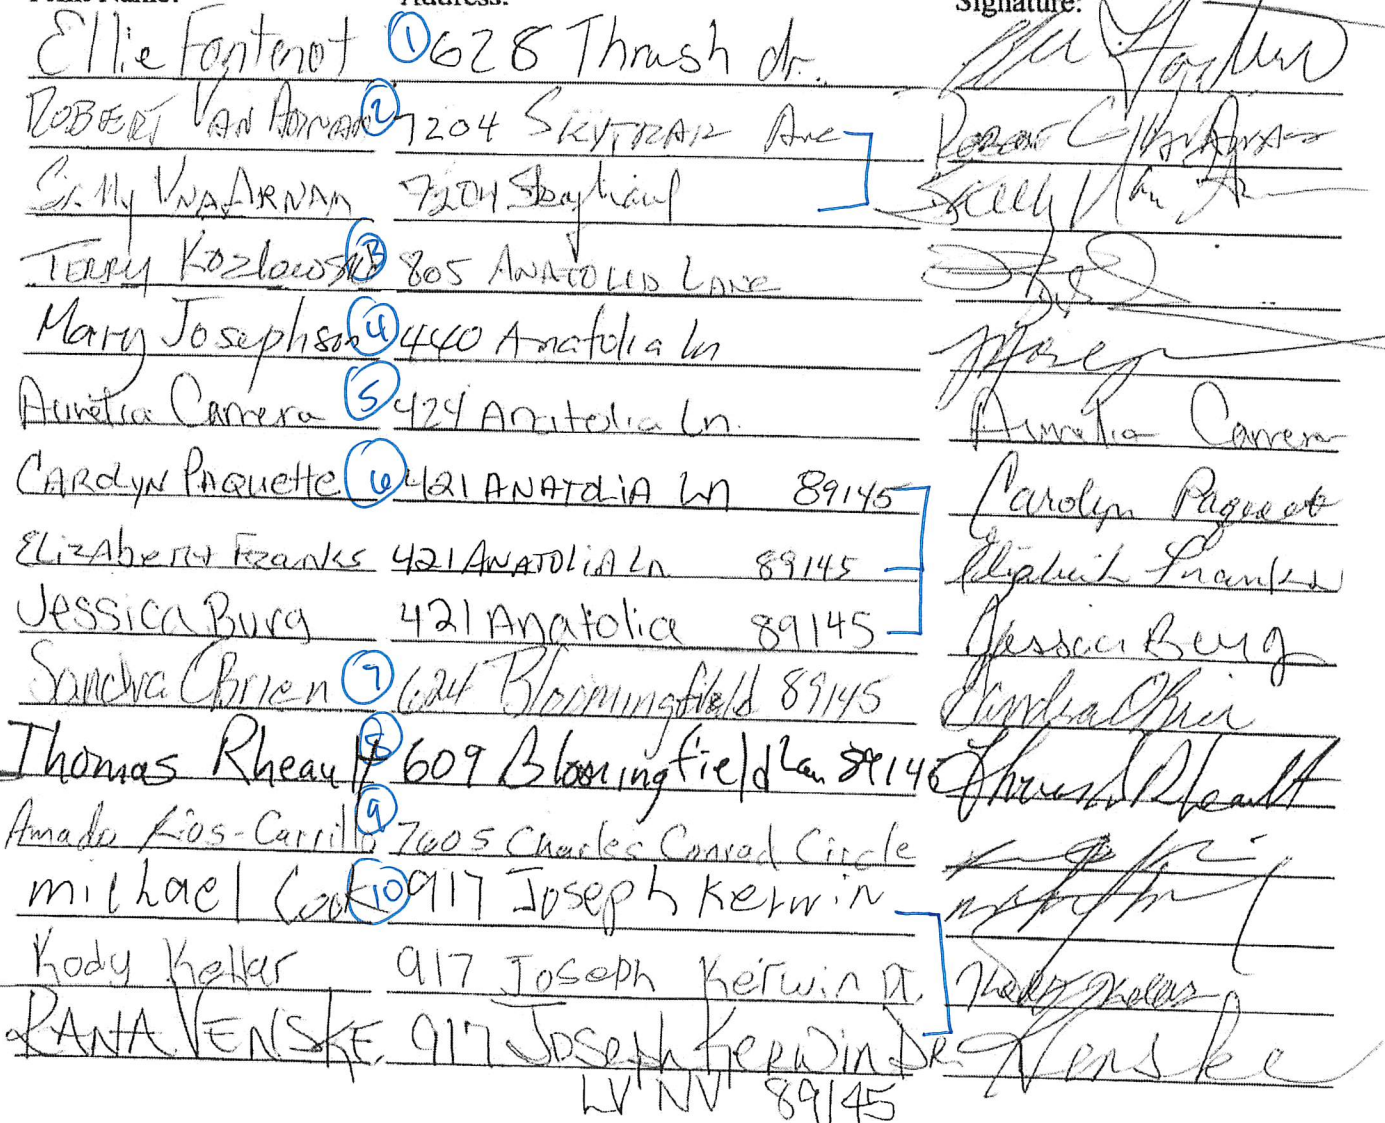 Print Name: Address: Signature:
Ellie Fontenot ① 628 Thrush dr.
ROBERT VAN ARNAM ② 7204 SKYTRAIL Ave
SALLY VNAARNAM 7204 Skytrail
TERRY KOZLOWSKI ③ 805 ANATOLIA LANE
Mary Josephson ④ 440 Anatolia ln
Aurelia Carrera ⑤ 424 Anatolia Ln. Aurelia Carrera
CAROLYN PAQUETTE ⑥ 421 ANATOLIA LN 89145 Carolyn Paquette
ELIZABETH FRANKS 421 ANATOLIA Ln 89145 Elizabeth Franks
Jessica Burg 421 Anatolia 89145 Jessica Burg
Sandra OBrien ⑦ 624 Bloomingfield 89145 Sandra OBrien
Thomas Rheault ⑧ 609 Bloomingfield Lan 89145 Thomas Rheault
Amado Rios-Carrillo ⑨ 7605 Charles Conrad Circle
michael Cook ⑩ 917 Joseph Kerwin
Kody Kellar 917 Joseph Kerwin Dr. Kody Kellar
RANA VENSKE 917 Joseph Kerwin DR. RVenske
LV NV 89145